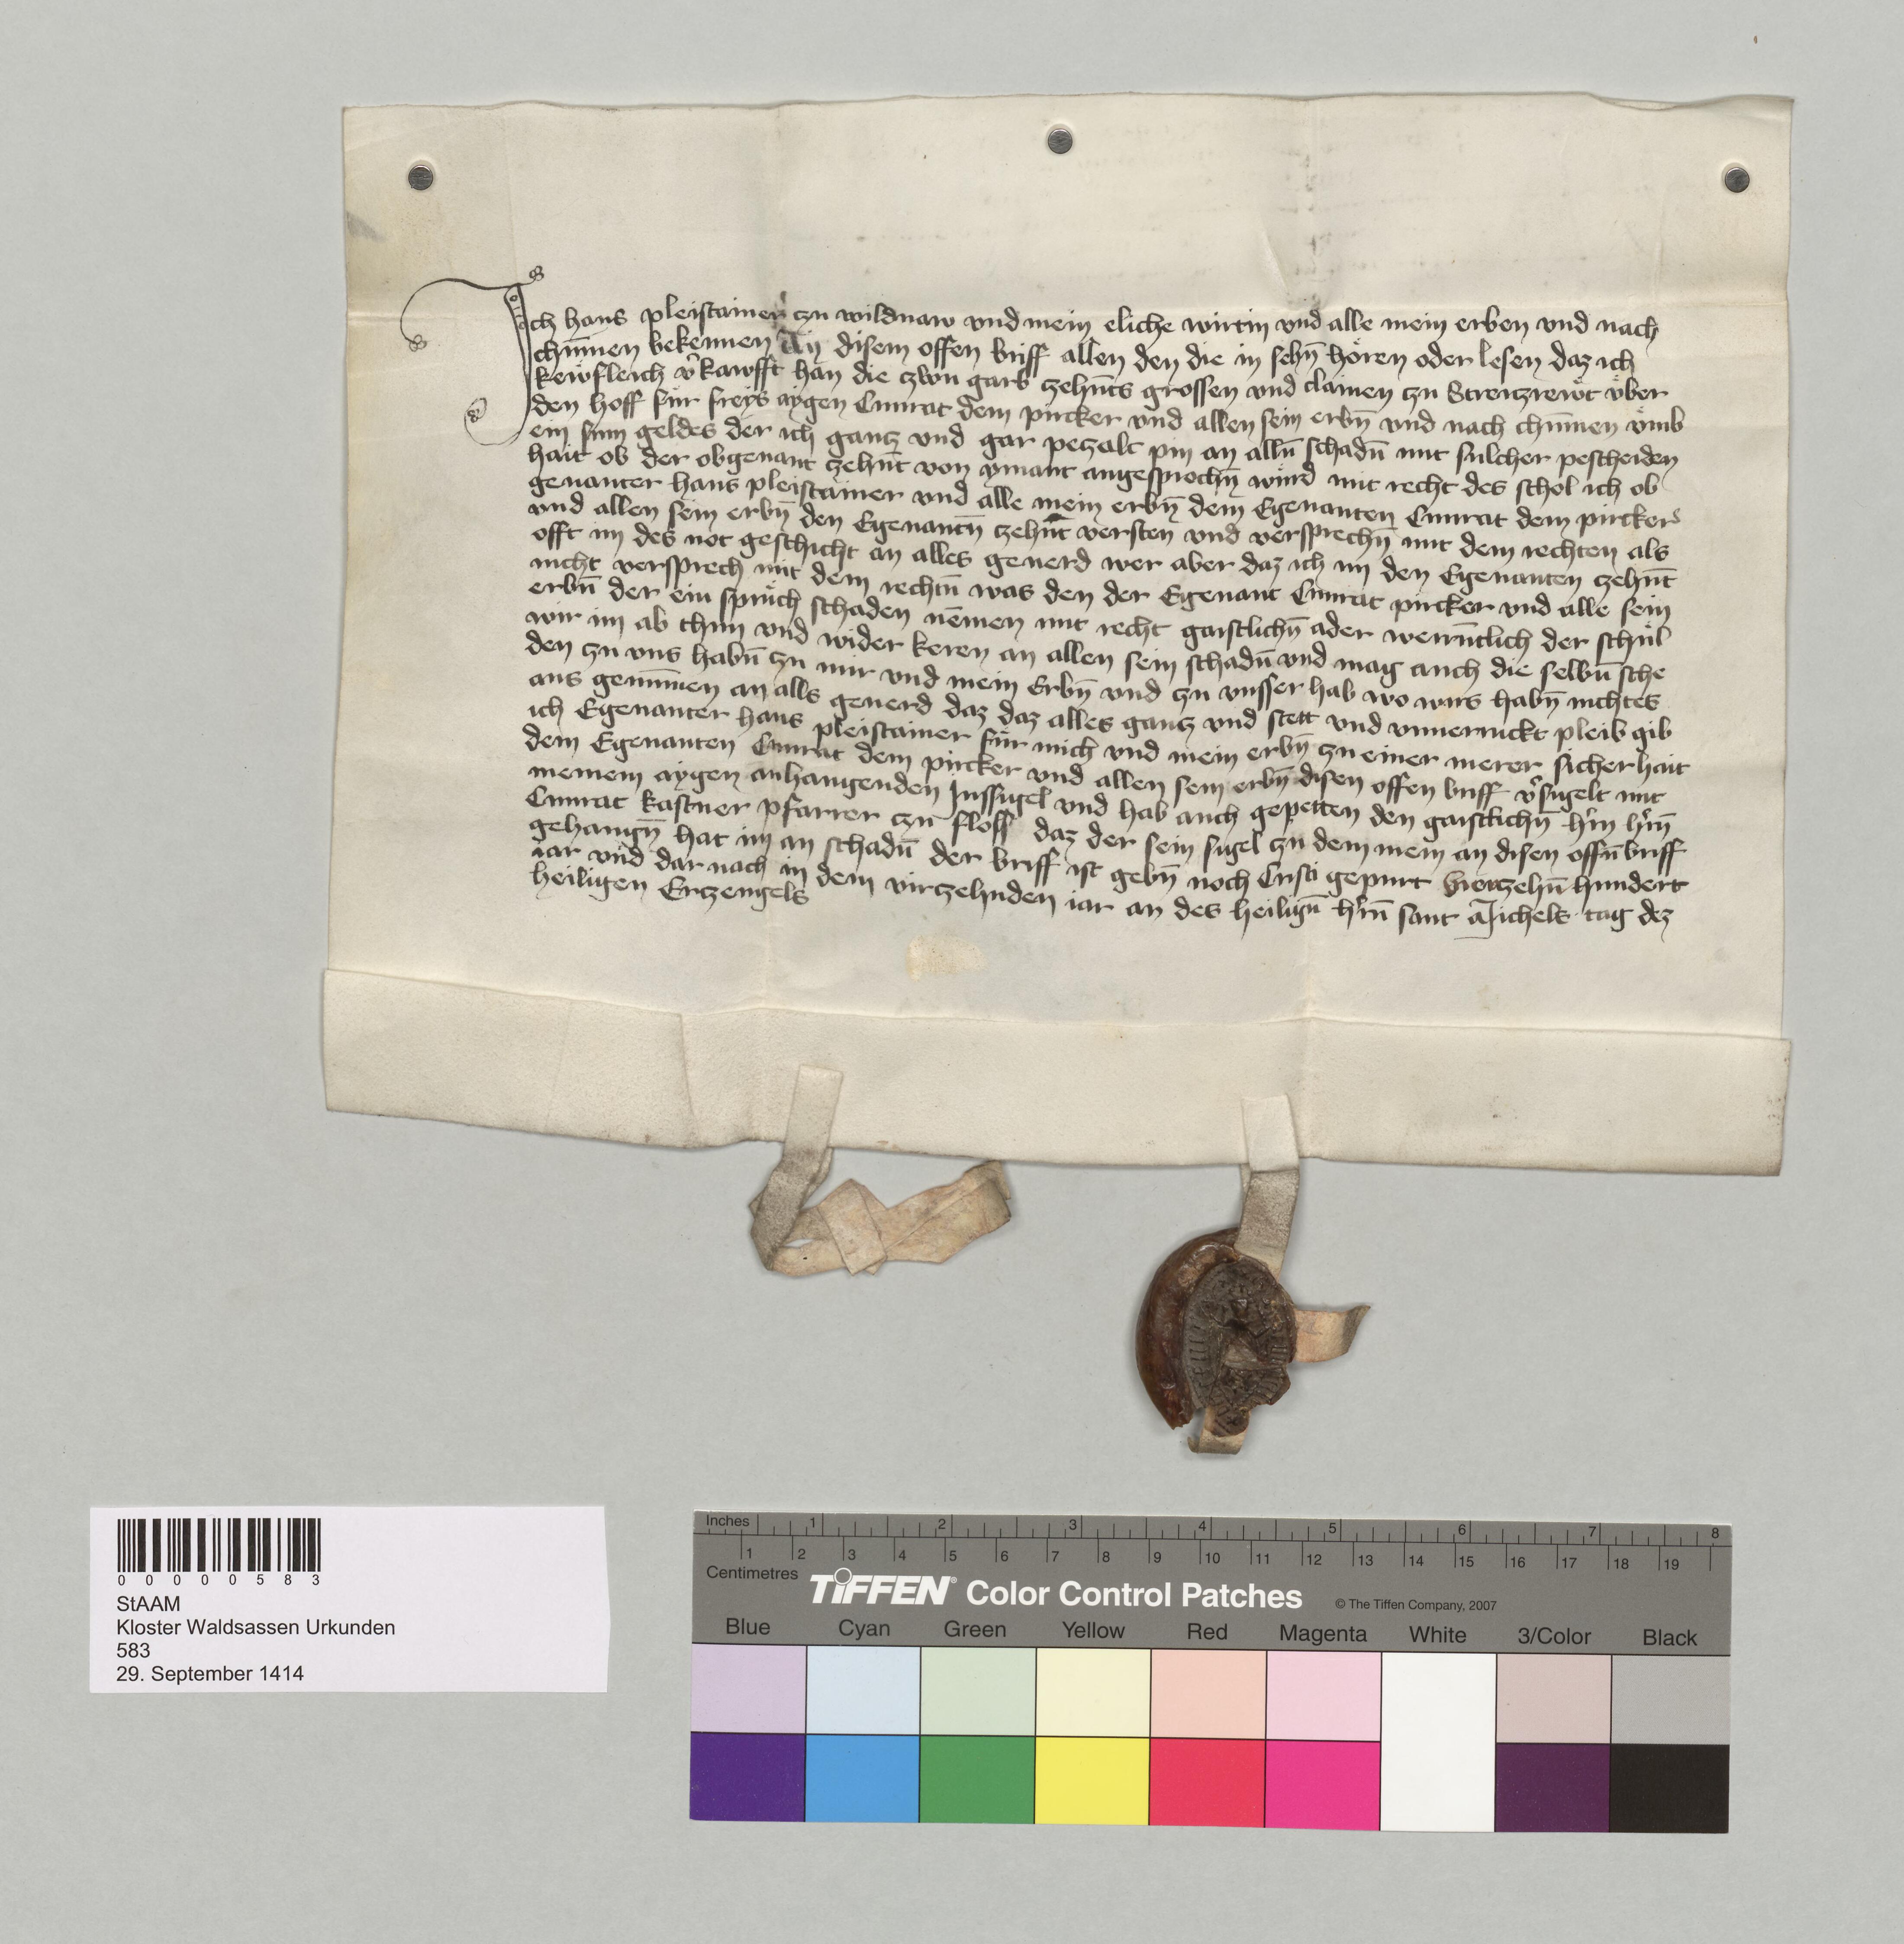 Ich hans pleistainer zu wildnaw vnd mein eliche wirtin vnd alle mein erben vnd nach
chūmen bekennen An disem offen briff allen den die in sehn̄ hören oder lesen daz ich
kewfleich v̾kawfft han die zwu garb zehnts grossen vnd clainen zu Strenzrewt über
den hoff für freys aygen Cunrat dem pircker vnd allen sein erbn̄ vnd nach chūmen vmb
ein sum geldes der ich gantz vnd gar peczalt pin an alln̄ schadn̄ mit sulcher pescheiden
hait ob der obgenant zehnt von ymant angesprochn̄ würd mit recht des schol ich ob
genanter hans pleistainer vnd alle mein erbn̄ dem Egenanten Cunrat dem pircker
vnd allen sein erbn̄ den Egenantn̄ zehnt versten vnd versprechn̄ mit dem rechten als
offt im des not geschicht an alles geuerd wer aber daz ich im den Egenanten zehnt
nicht versprech mit dem rechtn̄ was den der Egenant Cunrat pircker vnd alle sein
erbn̄ der ein sprüch schaden nēmen mit recht gaistlichn̄ ader werntlich der schül
wir im ab thun vnd wider keren an allen sein schadn̄ vnd mag auch die selbn̄ sche
den zu vns habn̄ zu mir vnd mein Erbn̄ vnd zu vnsser hab wo wirs habn̄ nichtes
aus genūmen an alls geuerd daz daz alles gantz vnd stett vnd vnuerruckt pleib gib
ich Egenanter hans pleistainer für mich vnd mein erbn̄ zu einer merer sicherhait
dem Egenanten Cunrat dem pircker vnd allen sein erbn̄ disen offen briff v̾sigelt mit
meinem aygen anhangenden Inssigel vnd hab auch gepetten den gaistlichn̄ h̾rn h̾rn̄
Cunrat kastner pfarrer zu floss daz der sein sigel zu dem mein an disen offn̄ briff
gehangn̄ hat im an schadn̄ der briff ist gebn̄ noch Cristi gepurt vierzehn̄ hundert
iar vnd dar nach in dem virzehnden iar an des heilign̄ h̾rn̄ sant Michels tag dez
heiligen Ertzengels
0 0 0 0 0 5 8 3
StAAM
Kloster Waldsassen Urkunden
583
29. September 1414
Inches 1 2 3 4 5 6 7 8
1 2 3 4 5 6 7 8 9 10 11 12 13 14 15 16 17 18 19
Centimetres
TIFFEN® Color Control Patches © The Tiffen Company, 2007
Blue Cyan Green Yellow Red Magenta White 3/Color Black